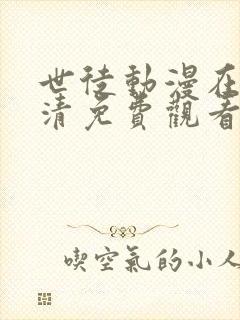 世徒動漫在
清免費觀看
喫空氣的小人